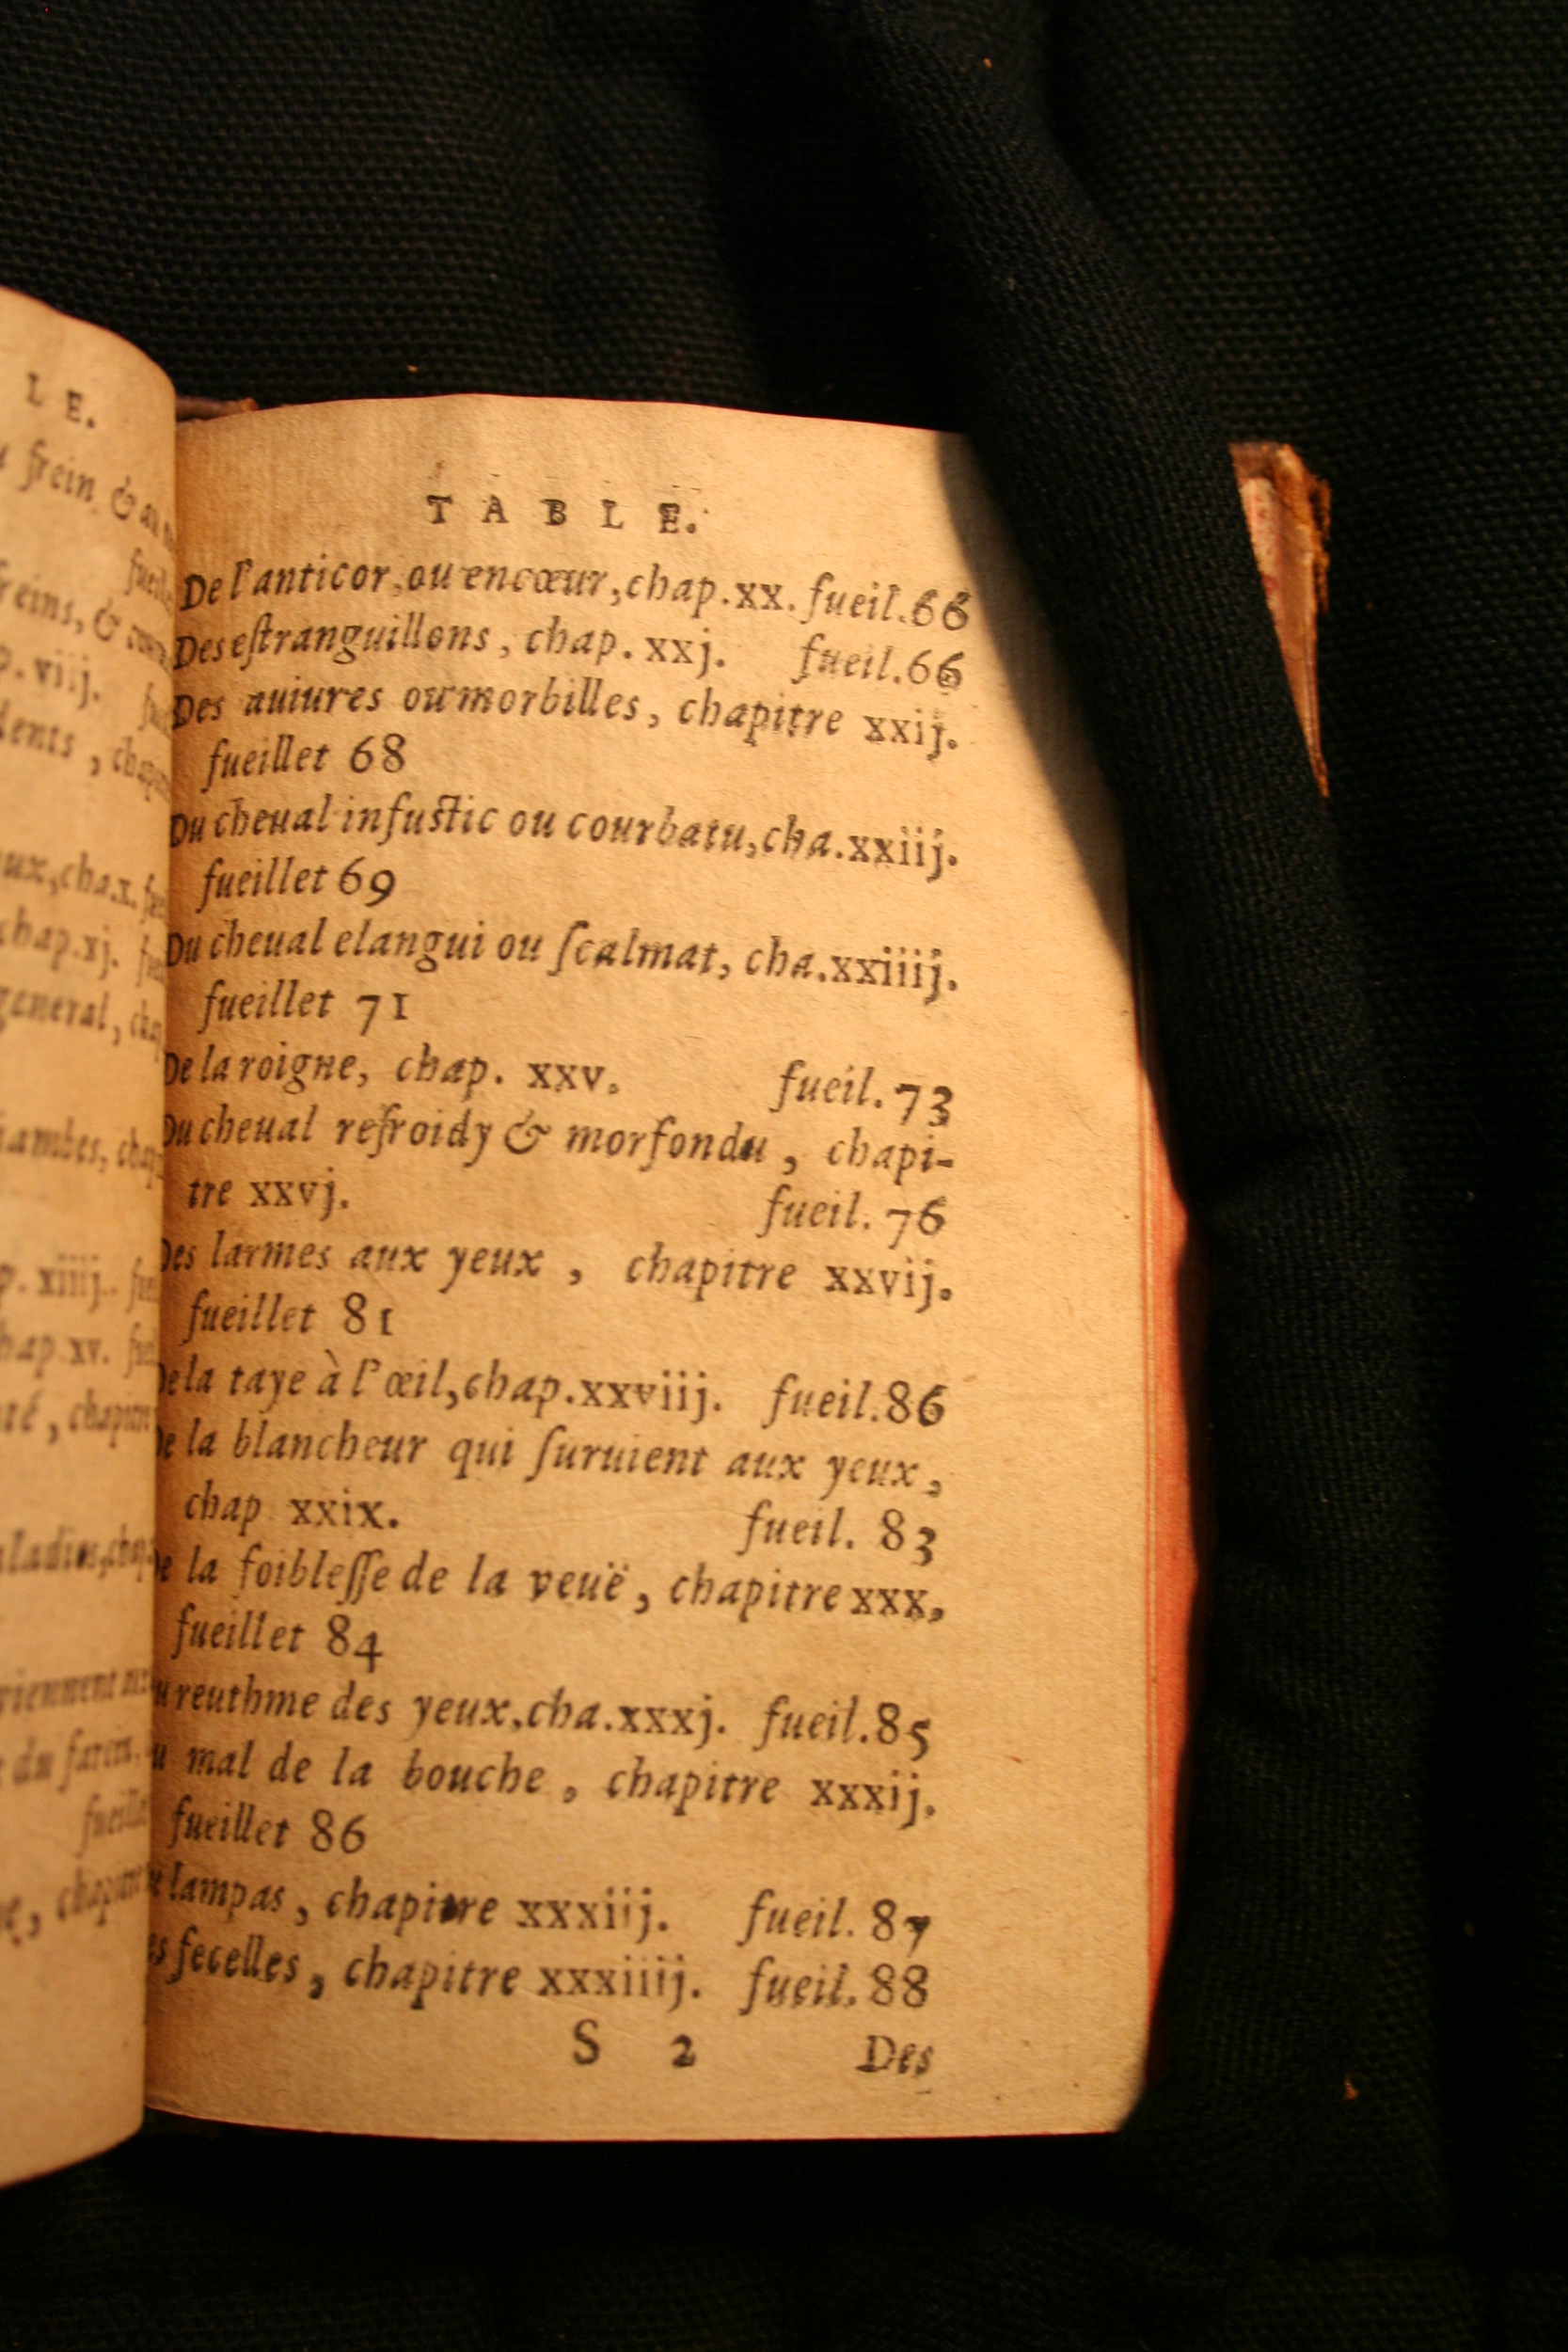 L E.
frein & au
fueil
freins, &
p. viij.
dents, chapi
aux, cha.x.
chap.xj.
general, cha
iambes, chap
p. xiiij.
chap.xv.
té, chapitre
aladies, chap.
viennent au
du farcin.
fueillet
e, chapitre
T A B L E.
De l'anticor, ou encœur, chap.xx. fueil.66
Des eſtranguillons, chap. xxj. fueil.66
Des auiures ou morbilles, chapitre xxij.
fueillet 68
Du cheual infuſtic ou courbatu, cha.xxiij.
fueillet 69
Du cheual elangui ou ſcalmat, cha.xxiiij.
fueillet 71
De la roigne, chap. xxv. fueil. 73
Du cheual refroidy & morfondu, chapi-
tre xxvj. fueil. 76
Des larmes aux yeux, chapitre xxvij.
fueillet 81
De la taye à l'œil, chap.xxviij. fueil.86
De la blancheur qui ſuruient aux yeux,
chap xxix. fueil. 83
De la foibleſſe de la veuë, chapitre xxx,
fueillet 84
u reuthme des yeux, cha.xxxj. fueil.85
u mal de la bouche, chapitre xxxij.
fueillet 86
e lampas, chapitre xxxiij. fueil. 87
es fecelles, chapitre xxxiiij. fueil. 88
S 2 Des